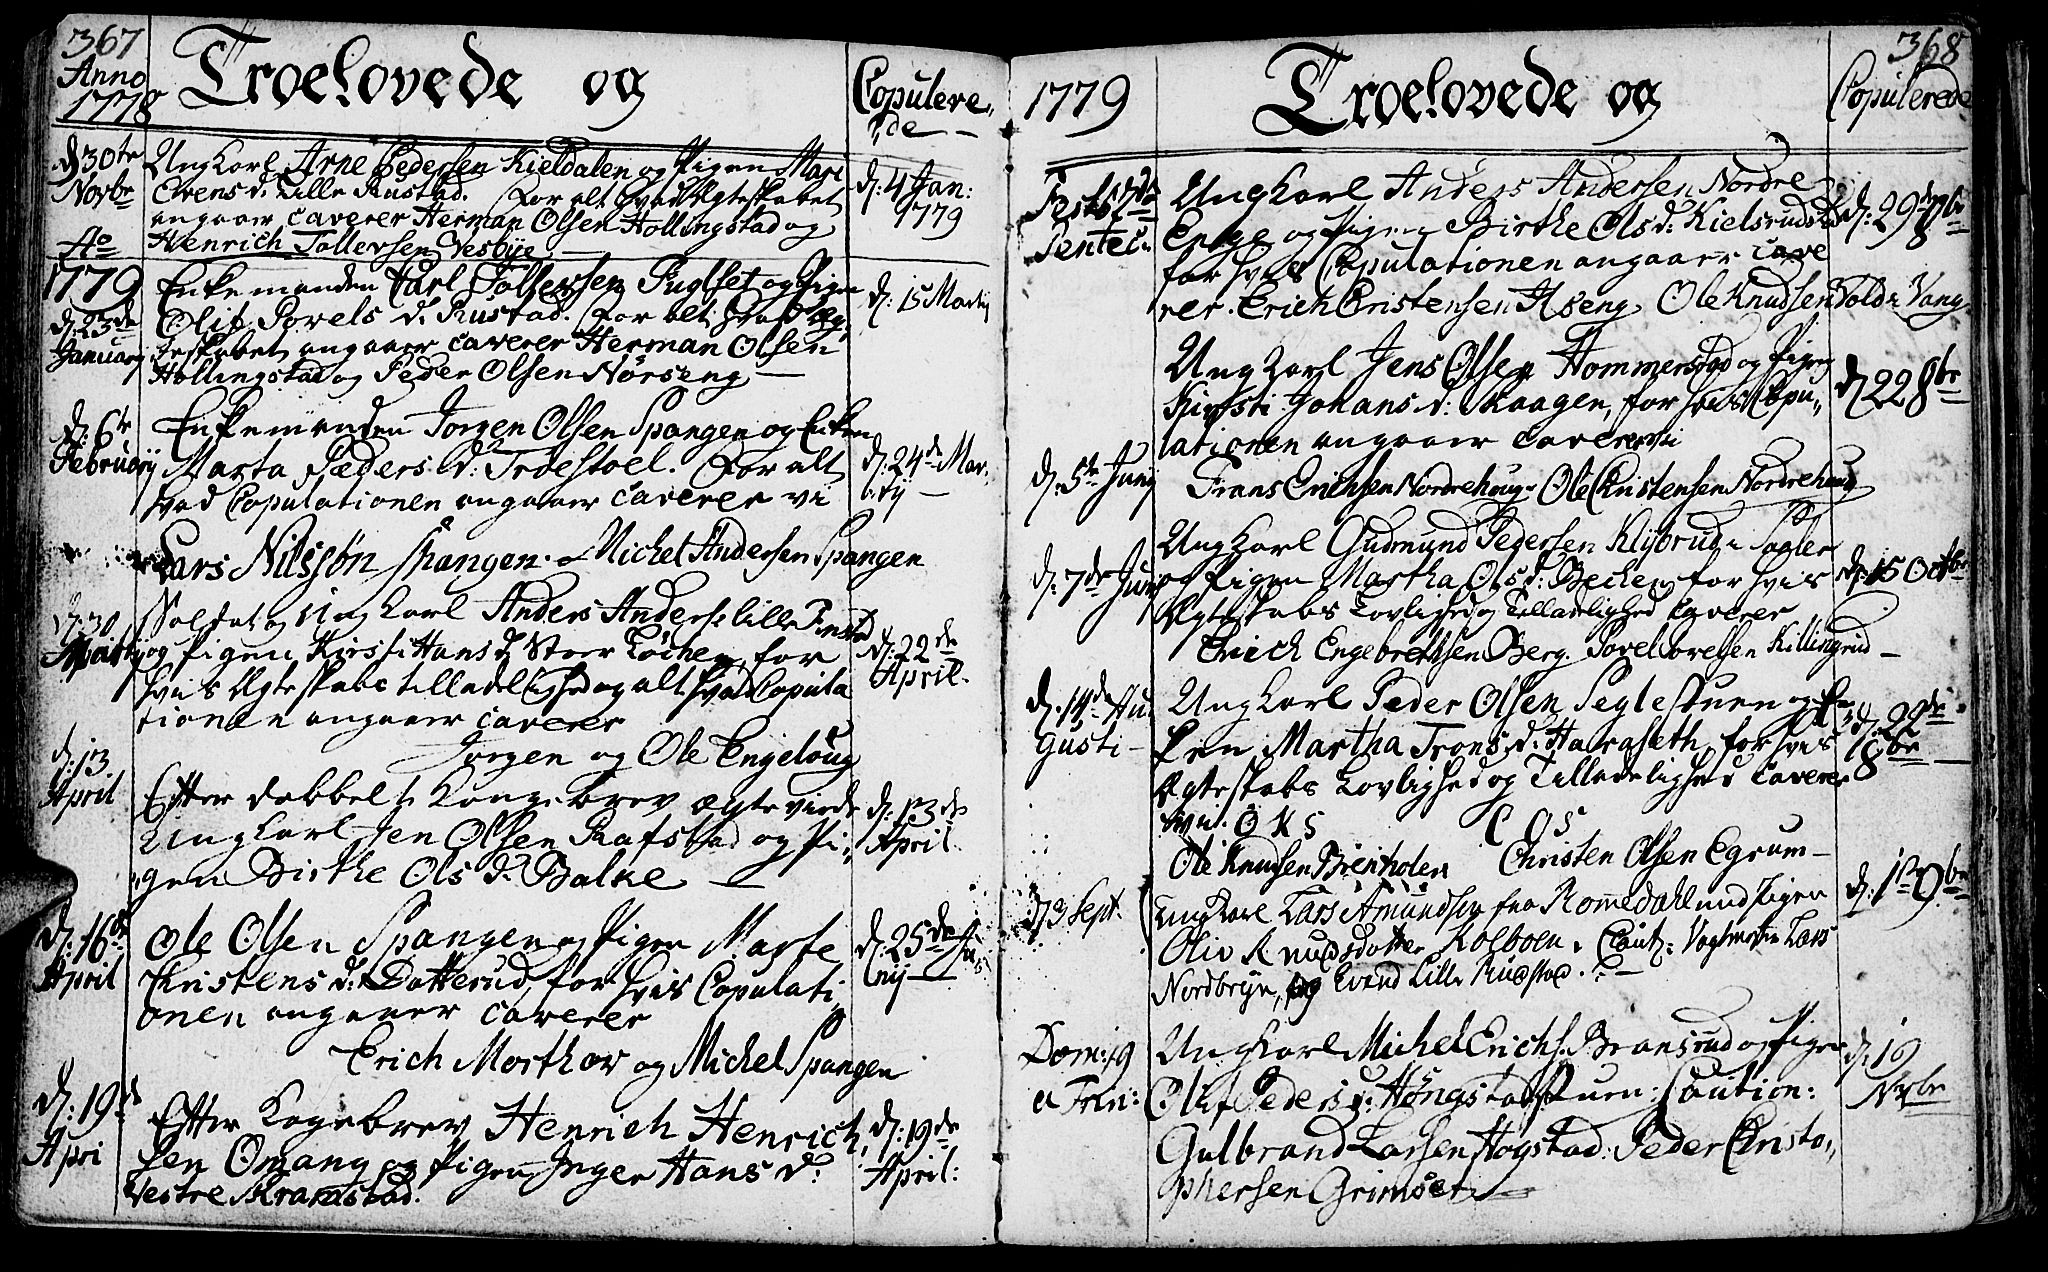 367
Anno
1778
Troelovede og
Copulere,
de
d: 30te
Novbr
Ungkarl Arne Pedersen Kieldalen og Pigen Mari
Evens d. Lille Rustad. For alt hvad Ægteskabet
angaaer caverer Herman Olsen Hollingstad og
Henrich Tollersen Vesbye
d: 4 Jan:
1779
Ao
1779
d. 23de
January
Enkemanden Carl Tollersen Fuglset og Pigen
Olif Povels d. Rustad. For alt hvad Æg
teskabet angaaer caverer Herman Olsen
Hollingstad og Peder Olsen Nørseng
d: 15 Martij
d: 6te
February
Enkemanden Jørgen Olsen Spangen og Enken
Marta Pæders d: Troestoel. For alt
hvad Copulationen angaaer caverer vi
Lars Nilssøn Spangen. Michel Andersen Spangen
d: 24de Mar,
tij
d: 30
Martij
Soldat og Ungkarl Anders Anders: lille Finstad
og Pigen Kirsti Hans d. Stoer Løcken, for
hvis Ægteskabs tilladelighed og alt hvad Copula
tionen angaaer caverer
Jørgen og Ole Engeloug
d: 22de
April.
d: 13
April
Efter dobbelt Kongebrev ægteviede
Ungkarl Jen Olsen Rafstad og Pi,
gen Birthe Ols d. Balke
d: 13de
April.
d: 16de
April
Ole Olsen Spangen og Pigen Marte
Christens d: Datterud, for hvis Copulati,
onen angaaer caverer
Erich Morthor og Michel Spangen
d: 25de Ju,
nij
d: 19de
Apri
Efter Kogebrev Henrich Henrich,
sen Omang og Pigen Inger Hans d:
Vestre Kramstad.
d: 19de
April:
368
1779
Troelovede og
Copulerede
Festo 2do
Pentec:
Ungkarl Anders Andersen Nordre
Enge og Pigen Birthe Ols d: Kielsrud
for hvis Copulationen angaaer cave
rer. Erich Cristensen Aseng Ole Knudsen Told: Vang
d: 29de 7br
8
Ungkarl Jens Olsen Hommerstad og Pigen
Kirsti Johans d: Kaagen, for hvis Copu,,
lationen angaaer caverer vi
Frans Erichsen Nordrehoug Ole Christensen Nordrehoug
d: 5te Junij
d 22 8br
d: 7de Junij
Ungkarl Gudmund Pedersen Klybrud
og Pigen Martha Ols d: Becken for hvis
Ægteskabs Lovlighed og Tilladelighed caverer
Erich Engebrettsen Berg. Povel Povelsen Killingrud
d: 15 Octbr
d. 14de Au,
gusti
Ungkarl Peder Olsen Seglestuen og En,
ken Martha Trons d: Hargseth, for hvis
Ægteskabs Lovlighed og Tilladelighed caverer
vi. O K S C O S
Ole Knudsen Brenholen Christen Olsen Egrum
d. 22de
8br
d 3 Sept.
Ungkarl Lars Amundsen fra Romedahl und Pigen
Oliv Knudsdotter Kolboen. Caut: Vogtmester Lars
Nordbryn, og Evend Lille Rudstad.
d: 1te 9br
Dom: 19
a Trin:
Ungkarl Michel Erichs. Bransrud og Pigen
Olif Peders d: Høngstadstuen: Caution:
Gulbrand Larsen Hogstad. Peder Christo,,
phersen Grimset
d: 19
Nvbr